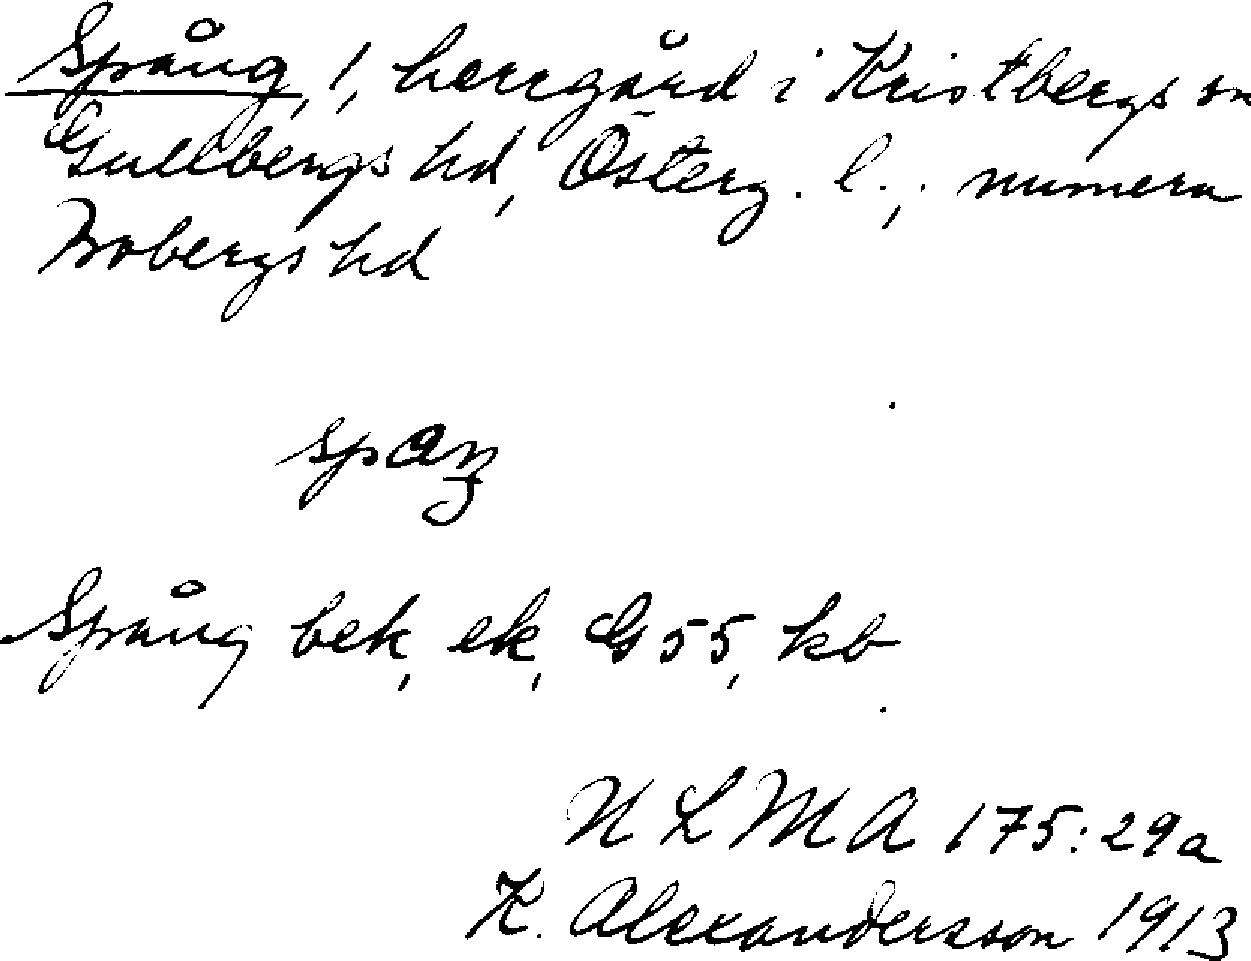 Spång, 1, herrgård i Kristbergs sn
Gullbergs hd, Österg. l.; numera
Bobergs hd
Spång bek, ek, G 55, kb
ULMA 175:29a
K. Alexandersson 1913